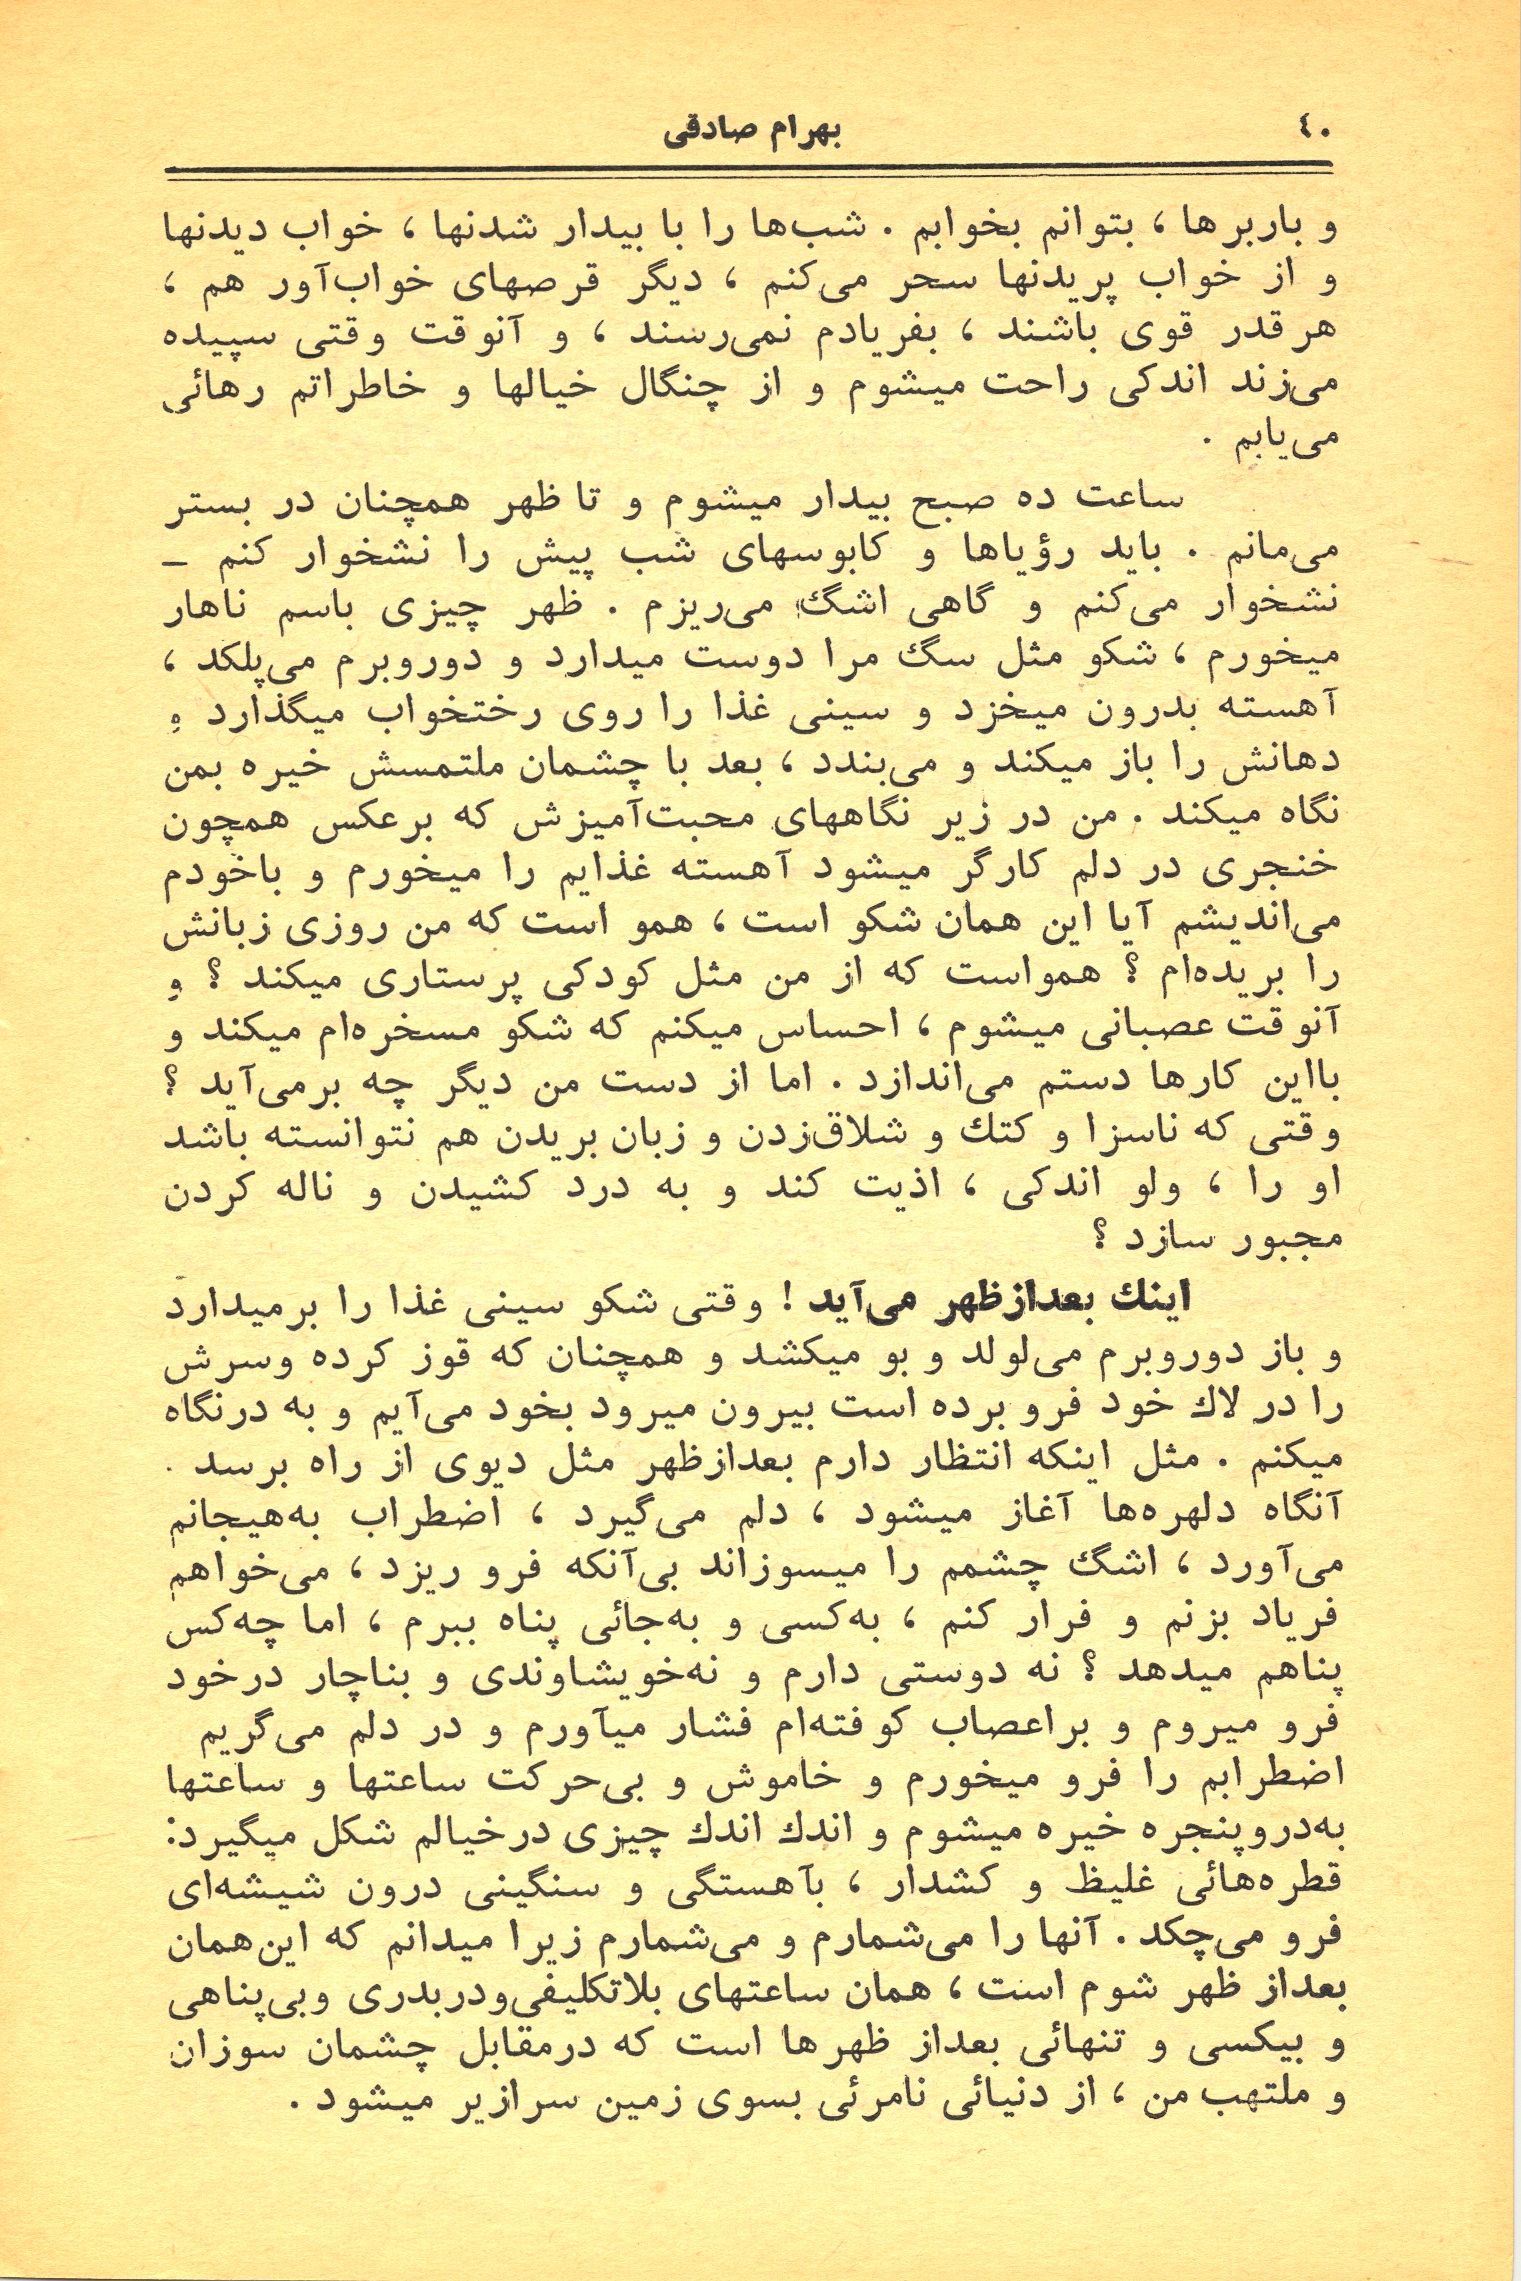 ٤٠
بهرام صادقی
و باربرها ، بتوانم بخوابم . شب‌ها را با بیدار شدنها ، خواب دیدنها
و از خواب پریدنها سحر می‌کنم ، دیگر قرصهای خواب‌آور هم ،
هر قدر قوی باشند ، بفریادم نمی‌رسند ، و آنوقت وقتی سپیده
می‌زند اندکی راحت میشوم و از چنگال خیالها و خاطراتم رهائی
می‌یابم .
ساعت ده صبح بیدار میشوم و تا ظهر همچنان در بستر
می‌مانم . باید رؤیاها و کابوسهای شب پیش را نشخوار کنم ـ
نشخوار می‌کنم و گاهی اشگ می‌ریزم . ظهر چیزی باسم ناهار
میخورم ، شکو مثل سگ مرا دوست میدارد و دوروبرم می‌پلکد ،
آهسته بدرون میخزد و سینی غذا را روی رختخواب میگذارد و
دهانش را باز میکند و می‌بندد ، بعد با چشمان ملتمسش خیره بمن
نگاه میکند . من در زیر نگاههای محبت‌آمیزش که برعکس همچون
خنجری در دلم کارگر میشود آهسته غذایم را میخورم و باخودم
می‌اندیشم آیا این همان شکو است ، همو است که من روزی زبانش
را بریده‌ام ؟ همواست که از من مثل کودکی پرستاری میکند ؟ و
آنوقت عصبانی میشوم ، احساس میکنم که شکو مسخره‌ام میکند و
بااین کارها دستم می‌اندازد . اما از دست من دیگر چه برمی‌آید ؟
وقتی که ناسزا و کتك و شلاق‌زدن و زبان بریدن هم نتوانسته باشد
او را ، ولو اندکی ، اذیت کند و به درد کشیدن و ناله کردن
مجبور سازد ؟
اینك بعدازظهر می‌آید ! وقتی شکو سینی غذا را برمیدارد
و باز دوروبرم می‌لولد و بو میکشد و همچنان که قوز کرده وسرش
را در لاك خود فرو برده است بیرون میرود بخود می‌آیم و به درنگاه
میکنم . مثل اینکه انتظار دارم بعدازظهر مثل دیوی از راه برسد .
آنگاه دلهره‌ها آغاز میشود ، دلم می‌گیرد ، اضطراب به‌هیجانم
می‌آورد ، اشگ چشمم را میسوزاند بی‌آنکه فرو ریزد ، می‌خواهم
فریاد بزنم و فرار کنم ، به‌کسی و به‌جائی پناه ببرم ، اما چه‌کس
پناهم میدهد ؟ نه دوستی دارم و نه‌خویشاوندی و بناچار درخود
فرو میروم و براعصاب کوفته‌ام فشار میآورم و در دلم می‌گریم
اضطرابم را فرو میخورم و خاموش و بی‌حرکت ساعتها و ساعتها
به‌دروپنجره خیره میشوم و اندك اندك چیزی درخیالم شکل میگیرد:
قطره‌هائی غلیظ و کشدار ، بآهستگی و سنگینی درون شیشه‌ای
فرو می‌چکد . آنها را می‌شمارم و می‌شمارم زیرا میدانم که این‌همان
بعداز ظهر شوم است ، همان ساعتهای بلاتکلیفی‌ودربدری وبی‌پناهی
و بیکسی و تنهائی بعداز ظهرها است که درمقابل چشمان سوزان
و ملتهب من ، از دنیائی نامرئی بسوی زمین سرازیر میشود .